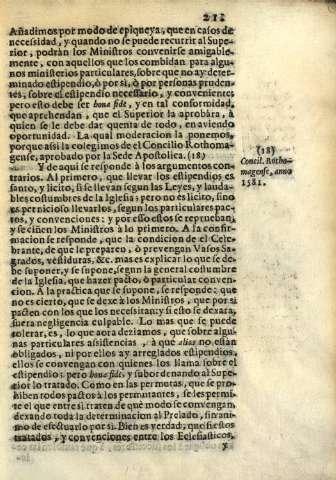 211
Añadimos por modo de epiqueya, que en casos de
necessidad, y quando no se puede recurrir al Supe-
rior, podràn los Ministros convenirse amigable-
mente, con aquellos que los combidan para algu-
nos ministerios particulares, sobre que no ay deter-
minado estipendio, ò por si, ò por personas pruden-
tes, sobre el estipendio necessario, y conveniente;
pero esto debe ser bona fide, y en tal conformidad,
que aprehendan, que el Superior la aprobàra, à
quien se le debe dar quenta de todo, en aviendo
oportunidad. La qual moderacion la ponemos,
porque assi la colegimos de el Concilio Rothoma-
gense, aprobado por la Sede Apostolica. (18)
(18)
Concil. Rotho-
magense, anno
1581.
Y de aqui se responde à los argumentos con-
trarios. Al primero, que llevar los estipendios es
santo, y licito, si se llevan segun las Leyes, y lauda-
bles costumbres de la Iglesia; pero no es licito, sino
es pernicioso llevarlos, segun los particulares pac-
tos, y convenciones: y por esso estos se reprueban,
y se ciñen los Ministros à lo primero. A la confir-
macion se responde, que la condicion de el Cele-
brante, de que le preparen, ò prevengan Vasos Sa-
grados, vestiduras, &c. mas es explicar lo que se de-
be suponer, y se supone, segun la general costumbre
de la Iglesia, que hazer pacto, ò particular conven-
cion. A la practica que se supone, se responde: que
no es cierto, que se dexe à los Ministros, que por si
pacten con los que los necessitan: y si esto se dexara,
fuera negligencia culpable. Lo mas que se puede
tolerar, es, lo que aora deziamos, que sobre algu-
nas particulares assistencias, à que alias no estàn
obligados, ni por ellos ay arreglados estipendios,
ellos se convengan con quienes los llama sobre el
estipendio: pero bona fide, y subordenando al Supe-
rior lo tratado. Como en las permutas, que se pro-
hiben todos pactos à los permutantes, se les permi-
te el que entre si traten de què modo se convengan,
dexando toda la determinacion al Prelado, sin ani-
mo de efectuarlo por si. Bien es verdad, que si estos
tratados, y convenciones entre los Eclesiasticos,